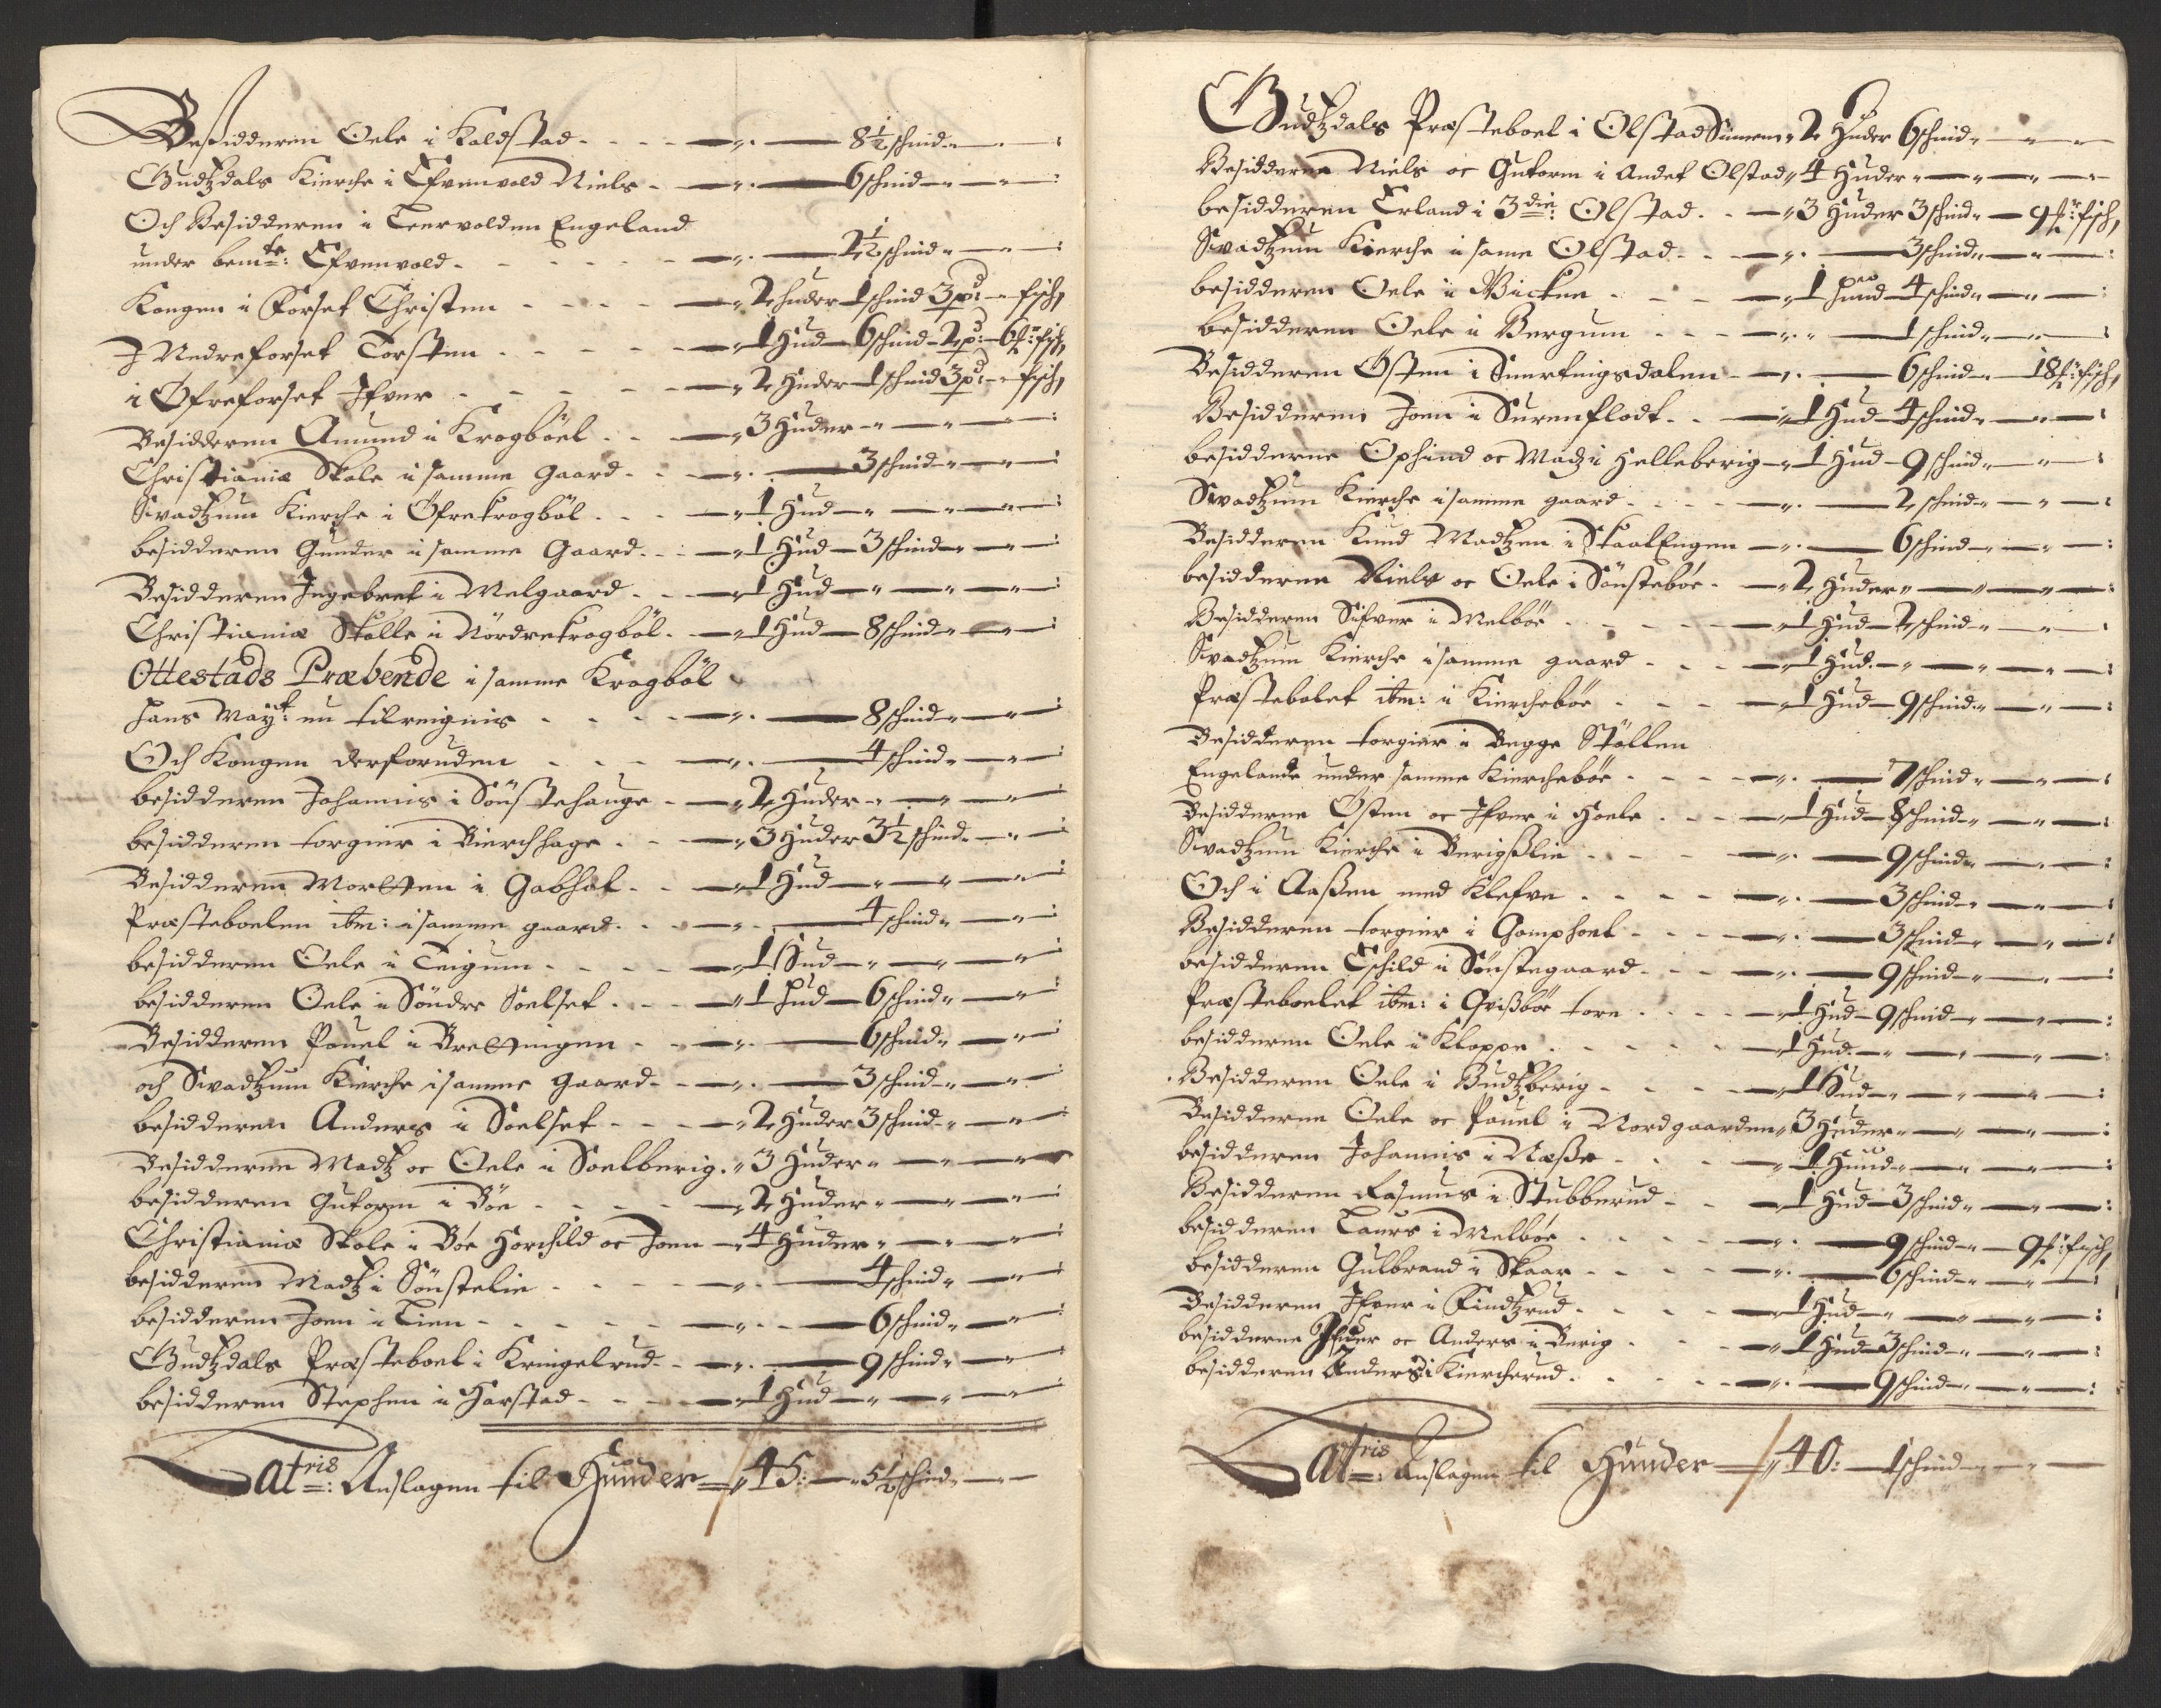 Besidderen Oele i Koldstad - - - — „ — 8½ schind „ — :
Gudtzdals Kierche i Efvenvold Niels - — „ — 6 schind — „ — :
Och Besidderen i Teervolden Engeland
under bemte: Efvenvold - - - — „ — 2½ schind „ — :
Kongen i Forset Christen - - - — „ 2 huder 1 schind 3 pd: „ fisch
I Nedreforset Torsten - - - — „ 1 Hud — 6 schind — 2 pd: — 6 ℔: fisch
i Øfreforset Ifver - - - — „ 2 Huder — 1 schind 3 pd: „ fisch
Besidderen Amund i Krogböel - - — „ 3 Huder „ — „ — :
Christianiæ Skole i samme Gaard - - — „ — 3 schind — „ — :
Svadtzum Kierche i Öfrekrogböl - - — „ 1 Hud — „ — „ — :
besidderen Gunder i samme Gaard - - — „ 1 Hud — 3 schind — „ — :
Besidderen Ingebret i Melgaard - - — „ 1 Hud — „ — „ — :
Christianiæ Skolle i Nördrekrogböl - — „ 1 Hud — 8 schind „ — :
Ottestads Præbende i samme Krogböl
Hans Mayt: nu tilreignis - - - — „ — 8 schind — „ — :
Och Kongen derforuden - - - — „ — 4 schind — „ — :
besidderen Johannis i Sönstehauge - — „ 2 Huder „ — „ — :
besidderen torgier i Bierchhage - — „ 3 Huder 3½ schind — „ — :
Besidderen Mortten i Gabhol - — „ 1 Hud — „ — „ — :
Præsteboelen ibm: i samme gaard - - — „ — 4 schind „ — :
besidderen Oele i Teigum - - - — „ 1 Hud — „ — „ — :
besidderen Oele i Söndre Soelset - - — „ 1 Hud — 6 schind „ — :
Besidderen Pouel i Brettingen - - — „ — 6 schind „ — :
och Svadtzum Kierche i samme Gaard - — „ — 3 schind — „ — :
besidderen Anders i Soelset - - — „ 2 Huder 3 schind „ — :
Besidderne Madtz oc Oele i Soelberig . „ 3 Huder „ — „ —
besidderen Gutorm i Böe - - - — „ 2 Huder „ — „ — :
Christianiæ Skole i Böe Horchild oc Joen — „ 4 Huder „ — „ — :
besidderen Madtz i Sönstelie - - — „ — 4 schind „ — :
besidderen Joen i Lien - - - — „ — 6 schind „ — :
Gudtzdals Præsteboel i Kringelrud - - — „ — 9 schind „ — :
besidderen Stephen i Harstad - - — „ 1 Hud — „ — „ — :
Latris: Anslagen til Huuder — „ 45: — „ 5½ schind „ —
Gudtzdals Præsteboel i Olstad Sunnen „ 2 Huder 6 schind „ — „ —
Besidderne Niels oc Gutorm i Andet Olstad „ 4 Huder „ — „ — „ —
besidderen Erland i 3die: Olstad - — „ 3 Huder 3 schind „ — 9 ℔: fisch
Svadtzum Kierche i same Olstad - - — „ — 3 schind „ — „ — :
besidderen Oele i Wicken - - — „ 1 hund 4 schind „ — „ — :
besidderen Oele i Bergum - - - — „ — 1 schind „ — „ — :
Besidderen Östen i Snertingsdalen - — „ — 6 schind „ — 18 ℔: fisch
Besidderen Joen i Surenflodt - - — „ 1 Hud — 4 schind „ — „ — :
besidderne Ophind oc Madz i Helleberig — „ 1 Hud — 9 schind „ — „ — :
Svadtzum Kierche i samme gaard - - — „ — 2 schind — „ — :
Besidderen Knud Madtzen i Skaal Engen — „ — 6 schind — „ — :
besidderne Niels oc Oele i Sönstebøe - — „ 2 Huder „ — „ — :
Besidderen Sifver i Melböe - - - — „ 1 Hud — 2 schind „ — „ — :
Svadtzum Kierche i samme gaard - - - — „ 1 Hud. — „ — „ — :
Præstebolet ibm: i Kierchebøe - - - — „ 1 Hud — 9 schind „ — „ — :
Besidderen torgier i Begge Stöllen
Engelande under samme Kierchebøe - - - — „ — 7 schind „ — „ — :
Besidderne Östen oc Ifver i Hoele - - — „ 1 Hud — 8 schind „ — „ — :
Svadtzum Kierche i Berigslie - - - — „ — 9 schind „ — „ — :
Och i Aaßen med Klefve - - - — „ — 3 schind „ — „ — :
Besidderen torgier i Gomphoel - - - — „ — 3 schind „ — „ — :
besidderen Eschild i Sönstegaard - - — „ — 9 schind „ — „ — :
Præsteboelet ibm: i Qvißböe tore - - - — „ 1 Hud — 9 schind — „ — :
besidderen Oele i Kloppe - - - — „ 1 Hud — „ — „ — :
Besidderen Oele i Budtzberig - - - — „ 1 Hud — „ — „ — :
Besidderne Oele oc Pouel i Nordgaarden „ 3 Huder „ — „ — :
besidderen Johannis i Næße - - - — „ 1 Huud „ — „ — :
Besidderen Rasmus i Stubberud - - — „ 1 Hud — 3 schind „ — „ — :
besidderen Laurs i Melbøe - - - — „ — 9 schind „ — 9 ℔: fisch
besidderen Gulbrand i Skaar - - - — „ — 6 schind — „ — :
Besidderen Ifver i Findtzrud - - - — „ 1 Hud — „ — „ — :
besidderne oc Anders i Berig - - — „ 1 Hud — 3 schind „ — „ — :
besidderen Anders i Kiercherud - - - — „ — 9 schind — „ — :
Latris: Anslagen til Huuder — „ 40: — 1 schind — „ —